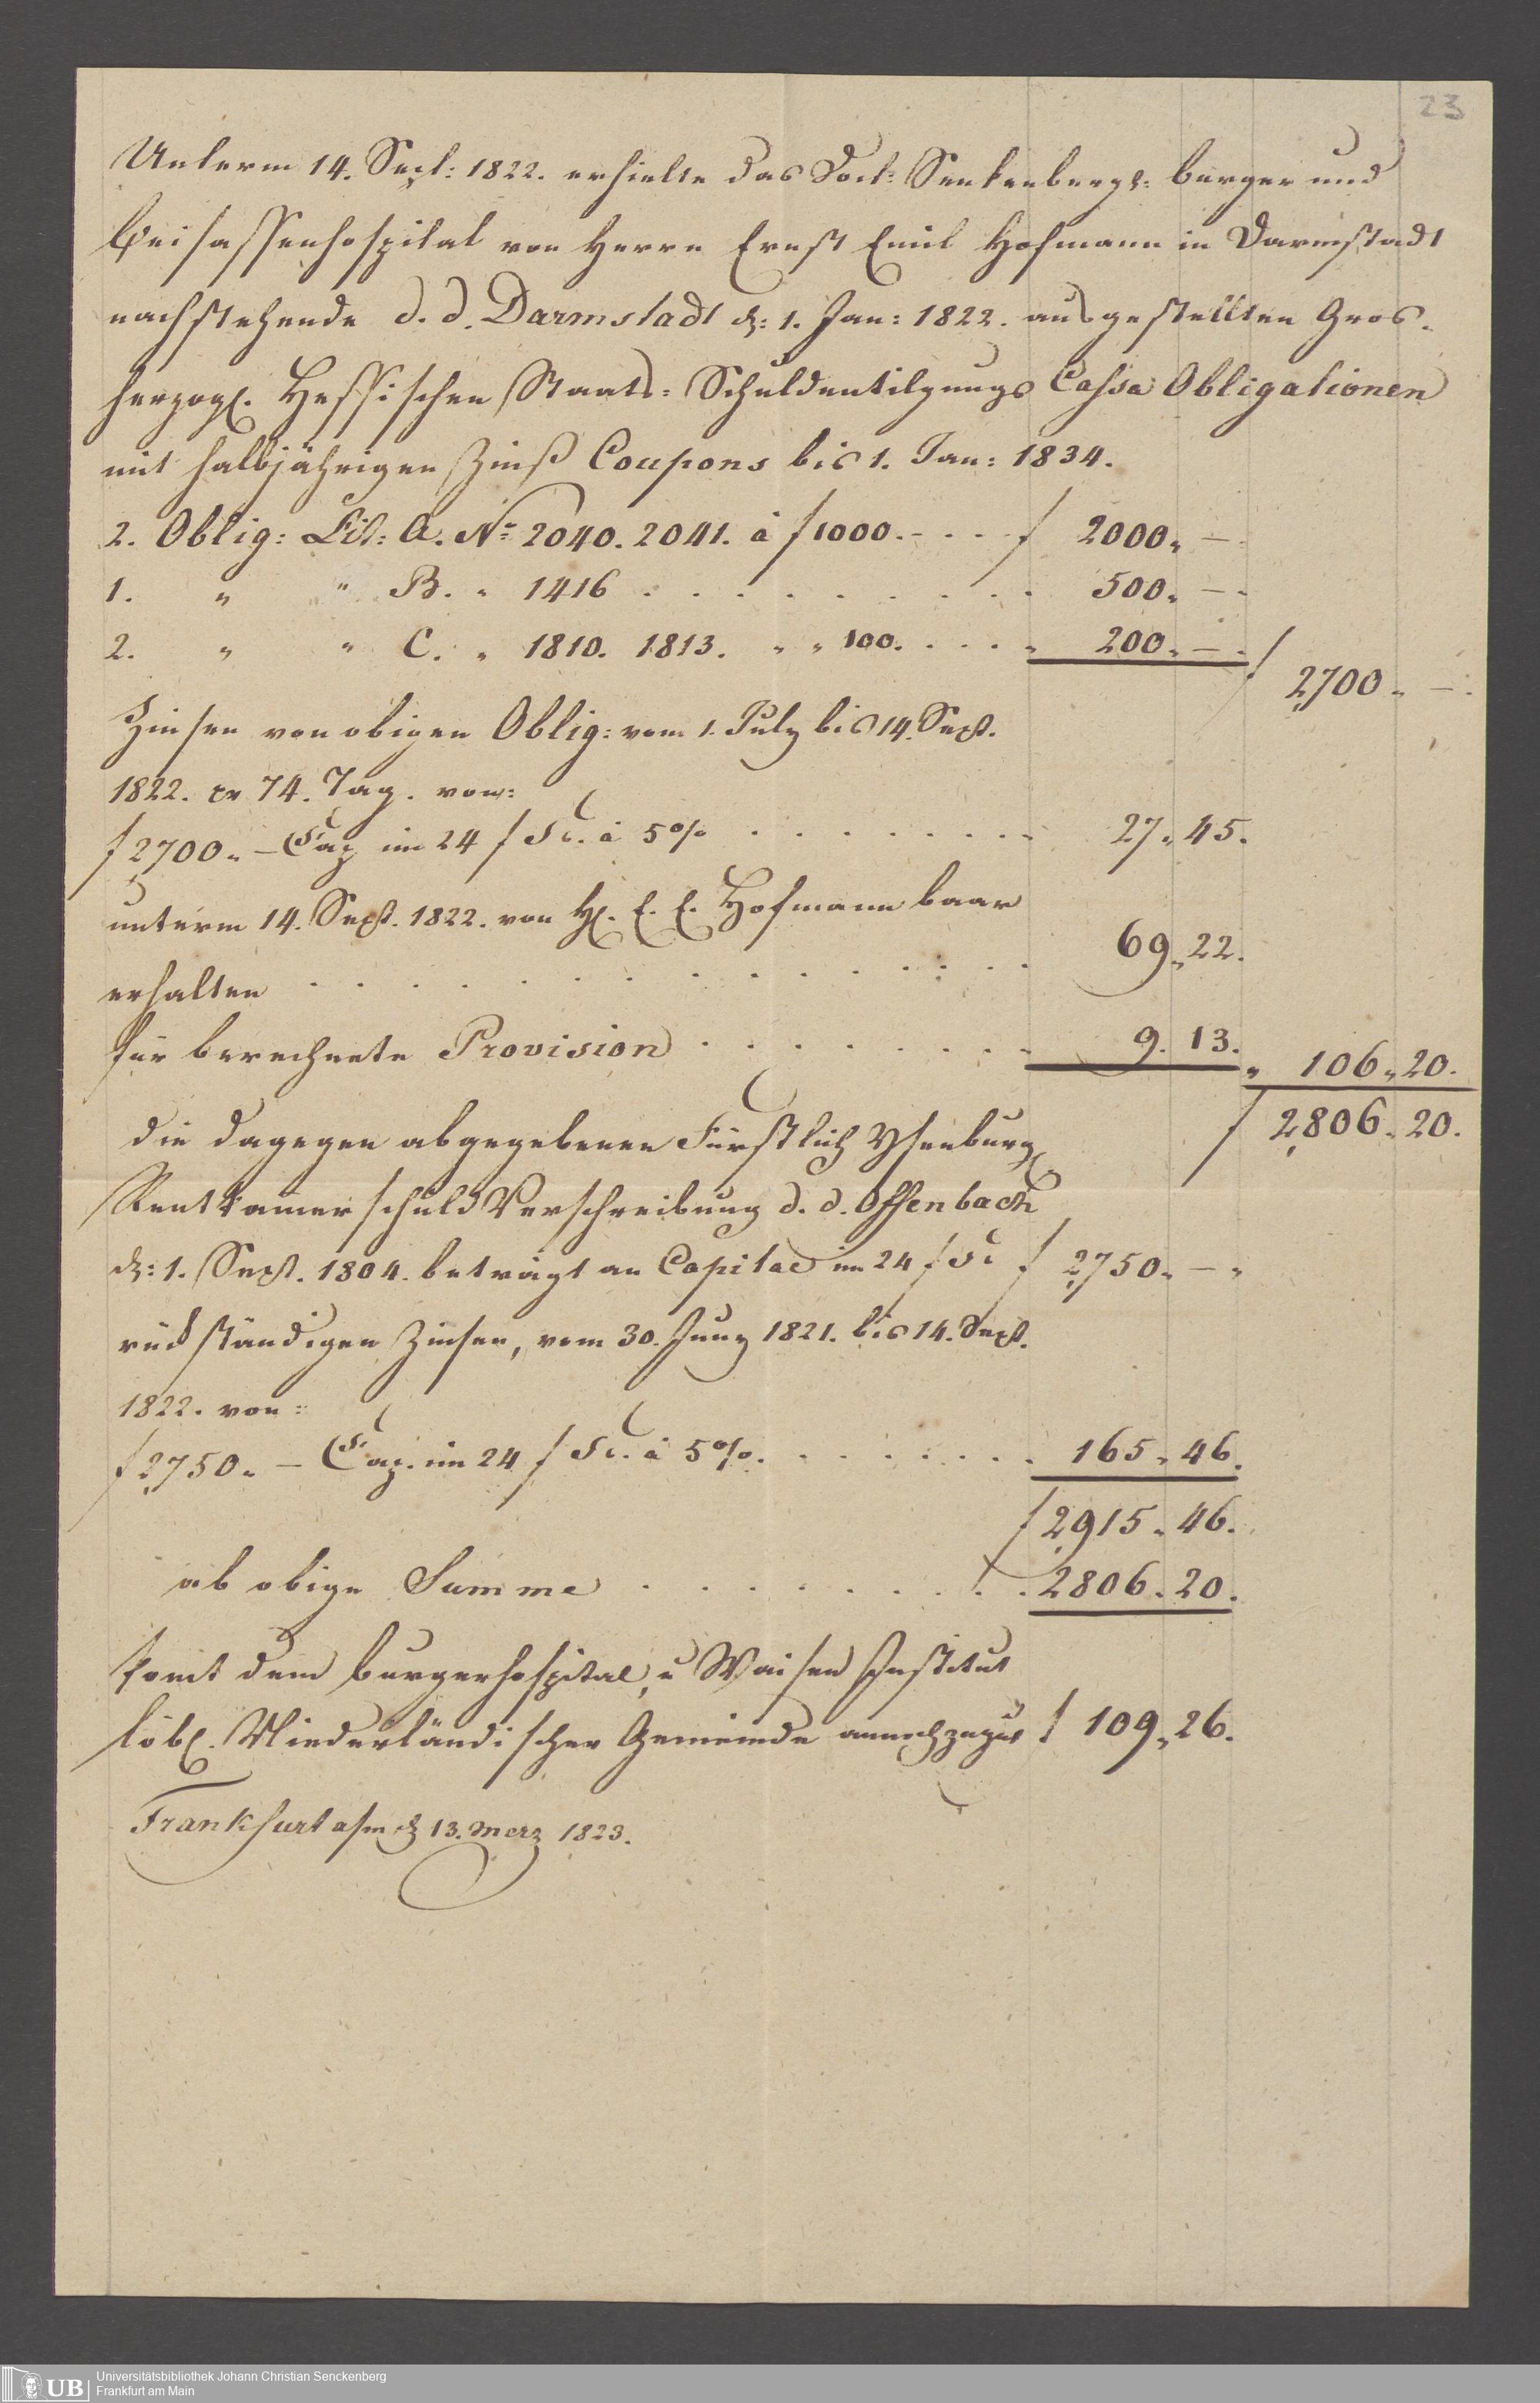 23
Unterm 14. Sept: 1822. erhielte das Doct: Senkenbergs: burger und
Beisassenhospital von Herrn Ernst Emil Hofmann in Darmstadt
nachstehende d. d. Darmstadt d: 1. Jan: 1822. ausgestellten Gros-
herzogl. Hessischen Staats-Schuldentilgungs Cassa Obligationen
mit halbjährigen Zinß Coupons bis 1. Jan: 1834.
2. Oblig: Lit: A. No 2040. 2041. á f 1000. - . . - f 2000. -
1. " " B. " 1416 . . . . . . . . . 500. -
2. " " C. " 1810. 1813. " " 100. . . . . " 200. -
f 2700. -
Zinsen von obigen Oblig: vom 1. July bis 14. Sept.
1822. pr 74. Tag. von:
f 2700. - Cap im 24 f Fs. á 5% . . . . . . . . 27. 45.
unterm 14. Sept. 1822. von H. E. E. Hofmann baar
erhalten . . . . . . . . . . . . . 69. 22.
für berechnete Provision . . . . . . . . 9. 13.
" 106. 20.
f 2806. 20.
die dagegen abgegebenen Fürstlich Ysenburg.
Rentkamer schuld Verschreibung d. d. Offenbach
d: 1. Sept. 1804. beträgt an Capital im 24 f Fs f 2750. - "
rückständigen Zinsen, vom 30. Juny 1821. bis 14. Sept.
1822. von:
f 2750. - Cap. im 24 f Fs. á 5%. . . . . . . . 165. 46.
f 2915. 46.
ab obige Summe . . . . . . . . 2806. 20.
komt dem burgerhospital, u Waisen Institut
löbl. Niederländischer Gemeinde annoch zugut f 109. 26.
Frankfurt a/m d 13. Merz 1823.
UB
Universitätsbibliothek Johann Christian Senckenberg
Frankfurt am Main